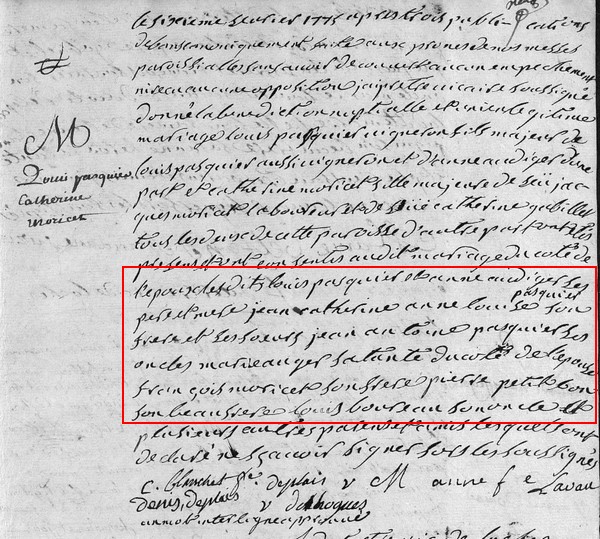 le sixieme fevrier 1775 apres trois publications
de bans canoniquement faite aux prones de nos messes
paroissialles sans avoir decouvert aucun empechement
ni eu aucune opposition jay pretre vicaire soussigné
donné la benediction nuptialle et
mariage louis pasquier vigneron fils majeur de
louis pasquier aussi vigneron et danne audiger dune
part et catherine moricet fille majeure de feü jac
ques moricet laboureur et de feüe catherine gabillet
tous les deux de cette paroisse dautre part ont
presens et ont consentis audit mariage du coté de
M
Louis pasquier
Catherine
moricet
l'epoux lesdits louis pasquier et anne audiger ses
pasquier
pere et mere jean catherine anne louise son
frere et ses soeurs jean antoine pasquier ses
oncles marie auger sa tante du coté de l'epouse
françois moricet son frere pierre petit bon
son beaufrere louis boureau son oncle et
plusieurs autres parents et amis lesquels ont
declaré ne sçavoir signer fors les soussignés
C. blanchet deplais v M anne f e Lavau
denis deplais v
un mot interligne approuvé